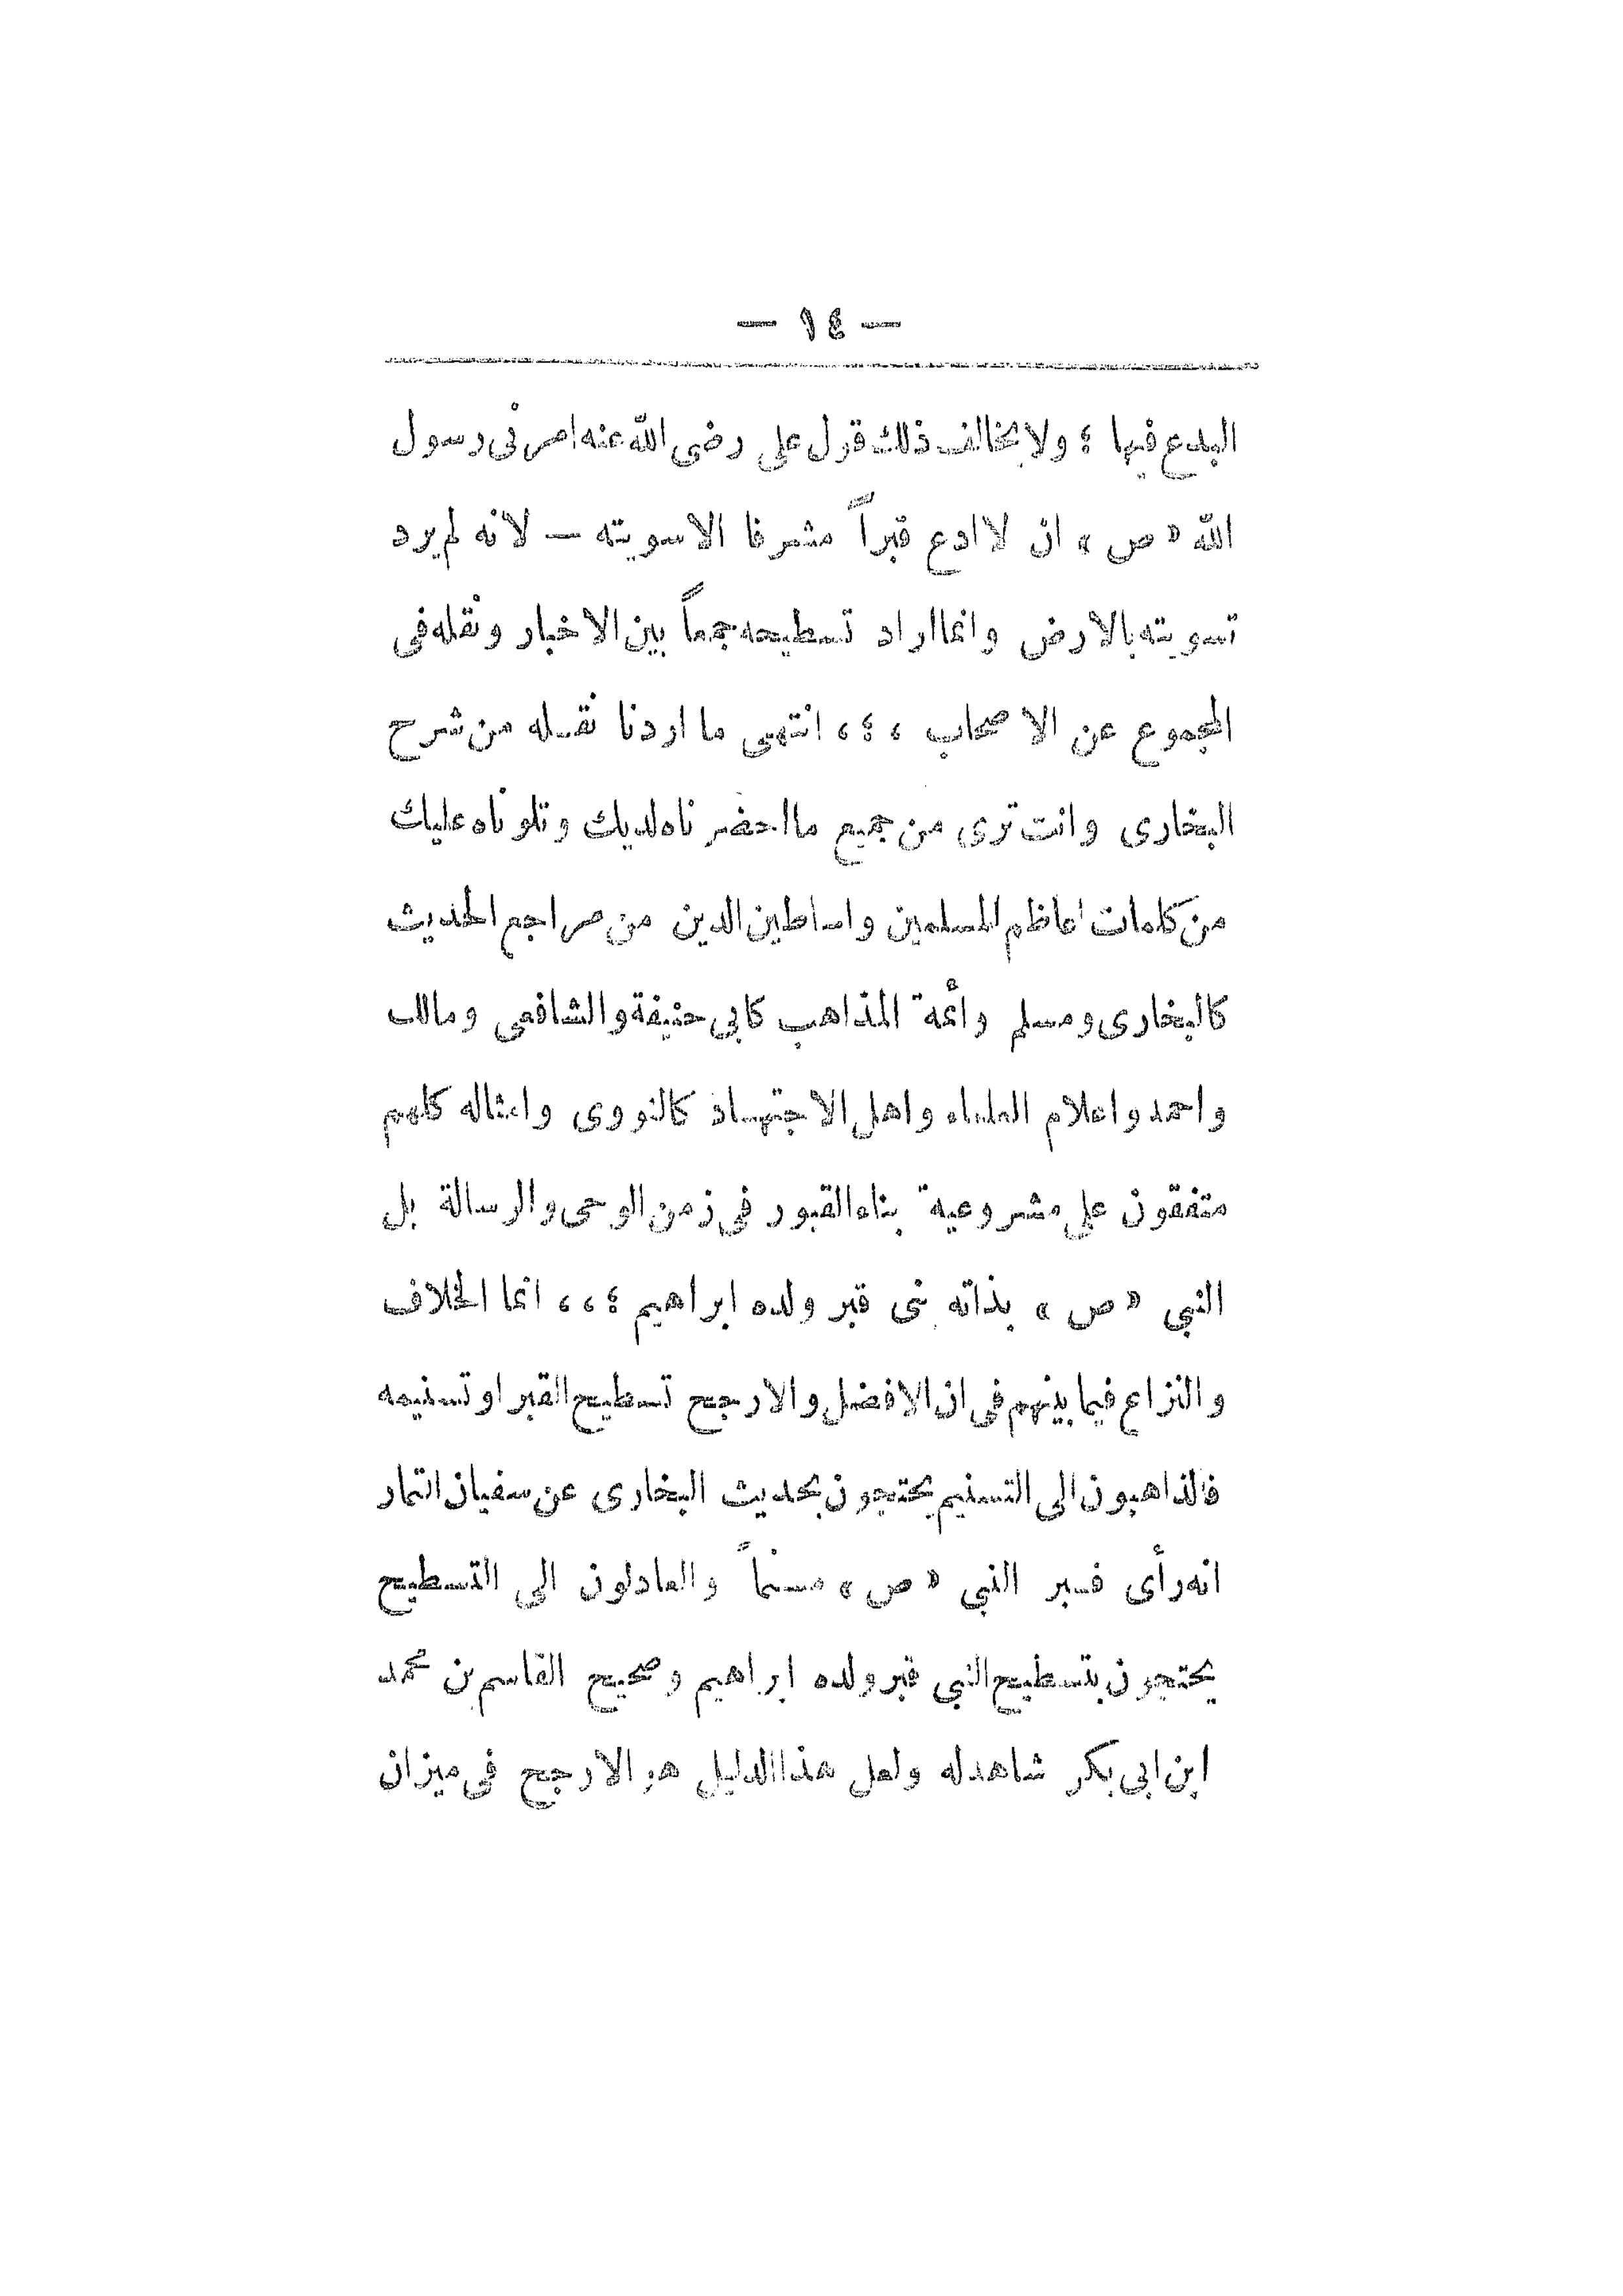 — ١٤ —
البدع فيها ؛ ولا يخالف ذلك قول علي رضى الله عنه امرنى رسول
الله « ص » ان لا ادع قبراً مشرفا الا سويته — لانه لم يرد
تسويته بالارض وانما اراد تسطيحه جمعاً بين الاخبار ونقله فى
المجموع عن الاصحاب ، ؛ ، انتهى ما اردنا نقله من شرح
البخارى وانت ترى من جميع ما احضرناه لديك وتلوناه عليك
من كلمات اعاظم المسلمين واساطين الدين من مراجع الحديث
كالبخارى ومسلم وأئمة المذاهب كابى حنيفة والشافعى ومالك
واحمد واعلام العلماء واهل الاجتهاد كالنووى وامثاله كلهم
متفقون على مشروعية بناء القبور فى زمن الوحى والرسالة بل
النبي « ص » بذاته بنى قبر ولده ابراهيم ؛ ، ، انما الخلاف
والنزاع فيما بينهم فى ان الافضل والارجح تسطيح القبر او تسنيمه
فالذاهبون الى التسنيم يحتجون بحديث البخارى عن سفيان التمار
انه رأى قبر النبي « ص » مسنماً والعادلون الى التسطيح
يحتجون بتسطيح النبي قبر ولده ابراهيم وصحيح القاسم بن محمد
ابن ابى بكر شاهد له ولعل هذا الدليل هو الارجح فى ميزان